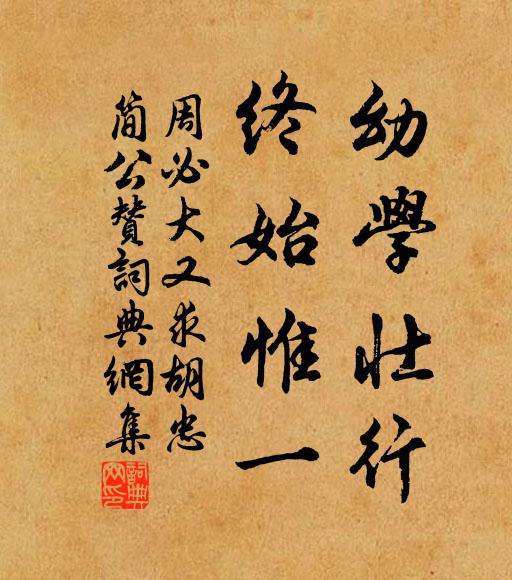 幼學壯行
終始惟一
周必大又求胡忠
簡公贊詞典網集
詞典網印